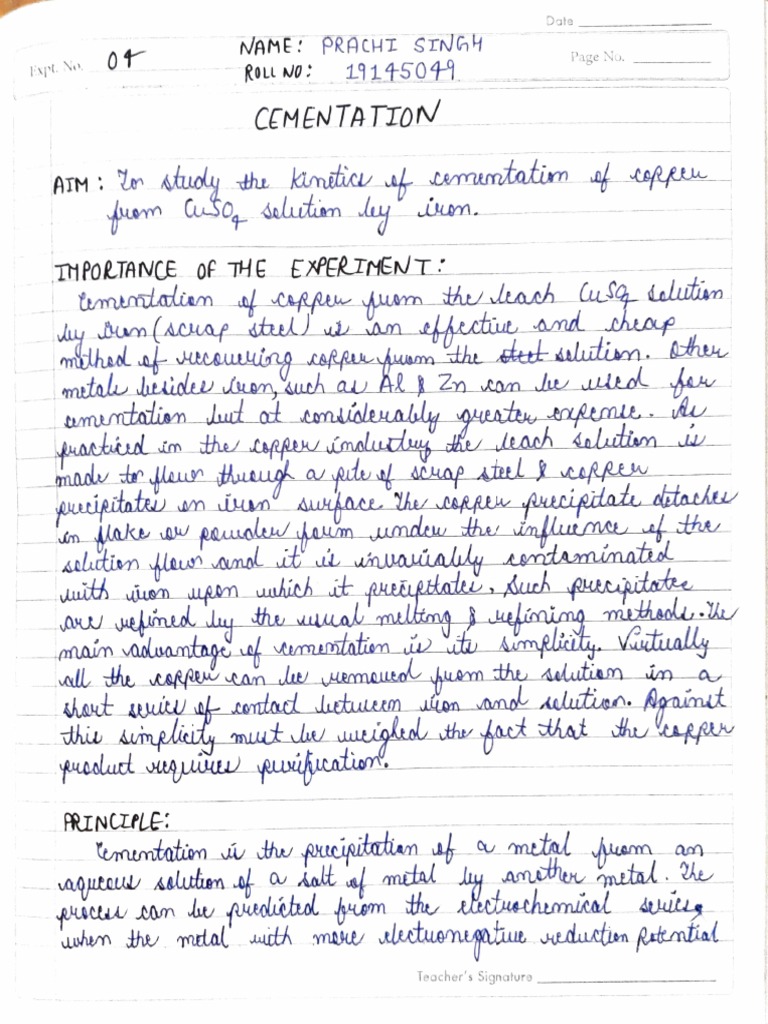 Date
Expt. No. 04
NAME: PRACHI SINGH
Page No.
ROLL NO: 19145049
CEMENTATION
AIM: To study the kinetics of cementation of copper
from CuSO4 solution by iron.
IMPORTANCE OF THE EXPERIMENT:
Cementation of copper from the leach CuSO4 solution
by iron (scrap steel) is an effective and cheap
method of recovering copper from the steel solution. Other
metals besides iron, such as Al & Zn can be used for
cementation but at considerably greater expense. As
practiced in the copper industry the leach solution is
made to flow through a pile of scrap steel & copper
precipitates on iron surface. The copper precipitate detaches
in flake or powder form under the influence of the
solution flow and it is invariably contaminated
with iron upon which it precipitates. Such precipitates
are refined by the usual melting & refining methods. The
main advantage of cementation is its simplicity. Virtually
all the copper can be removed from the solution in a
short series of contact between iron and solution. Against
this simplicity must be weighed the fact that the copper
product requires purification.
PRINCIPLE:
Cementation is the precipitation of a metal from an
aqueous solution of a salt of metal by another metal. The
process can be predicted from the electrochemical series,
when the metal with more electronegative reduction potential
Teacher's Signature